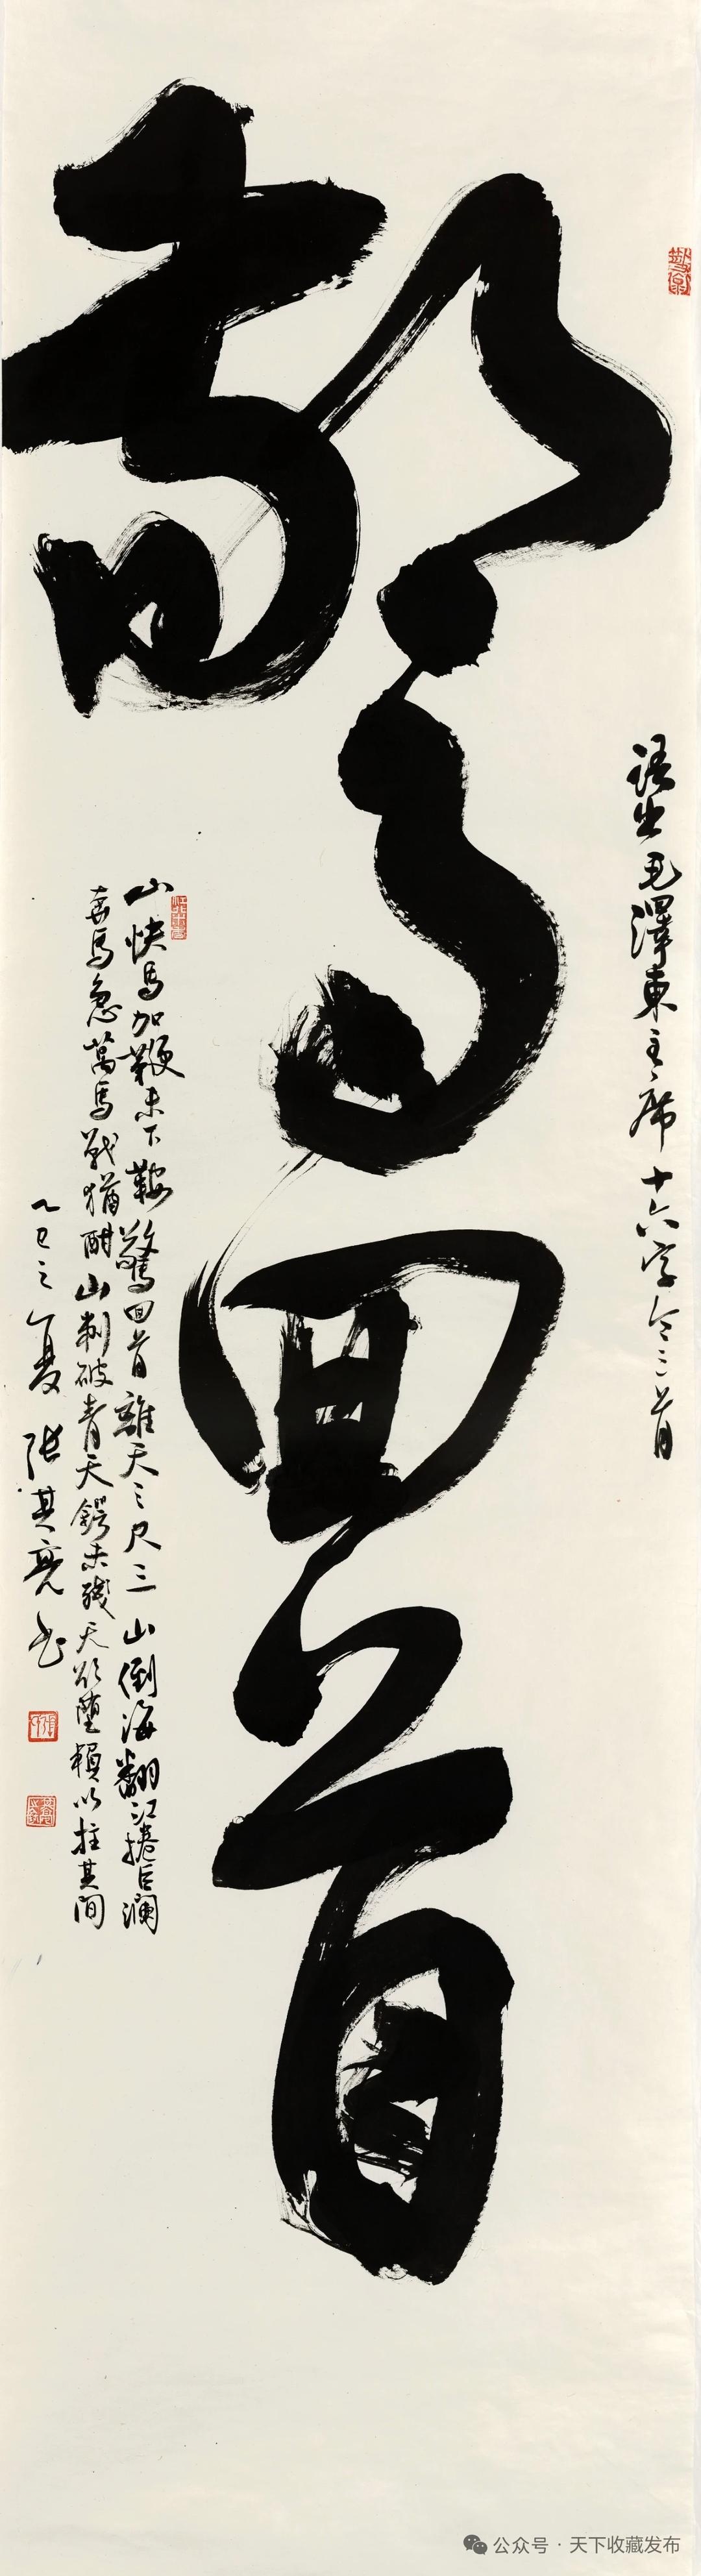 語出毛澤東主席十六字令三首
驚回首
山快馬加鞭未下鞍驚回首離天三尺三山倒海翻江捲巨瀾
奔馬急萬馬戰猶酣山刺破青天鍔未殘天欲墮賴以拄其間
乙巳之夏張其亮书
公众号 · 天下收藏发布